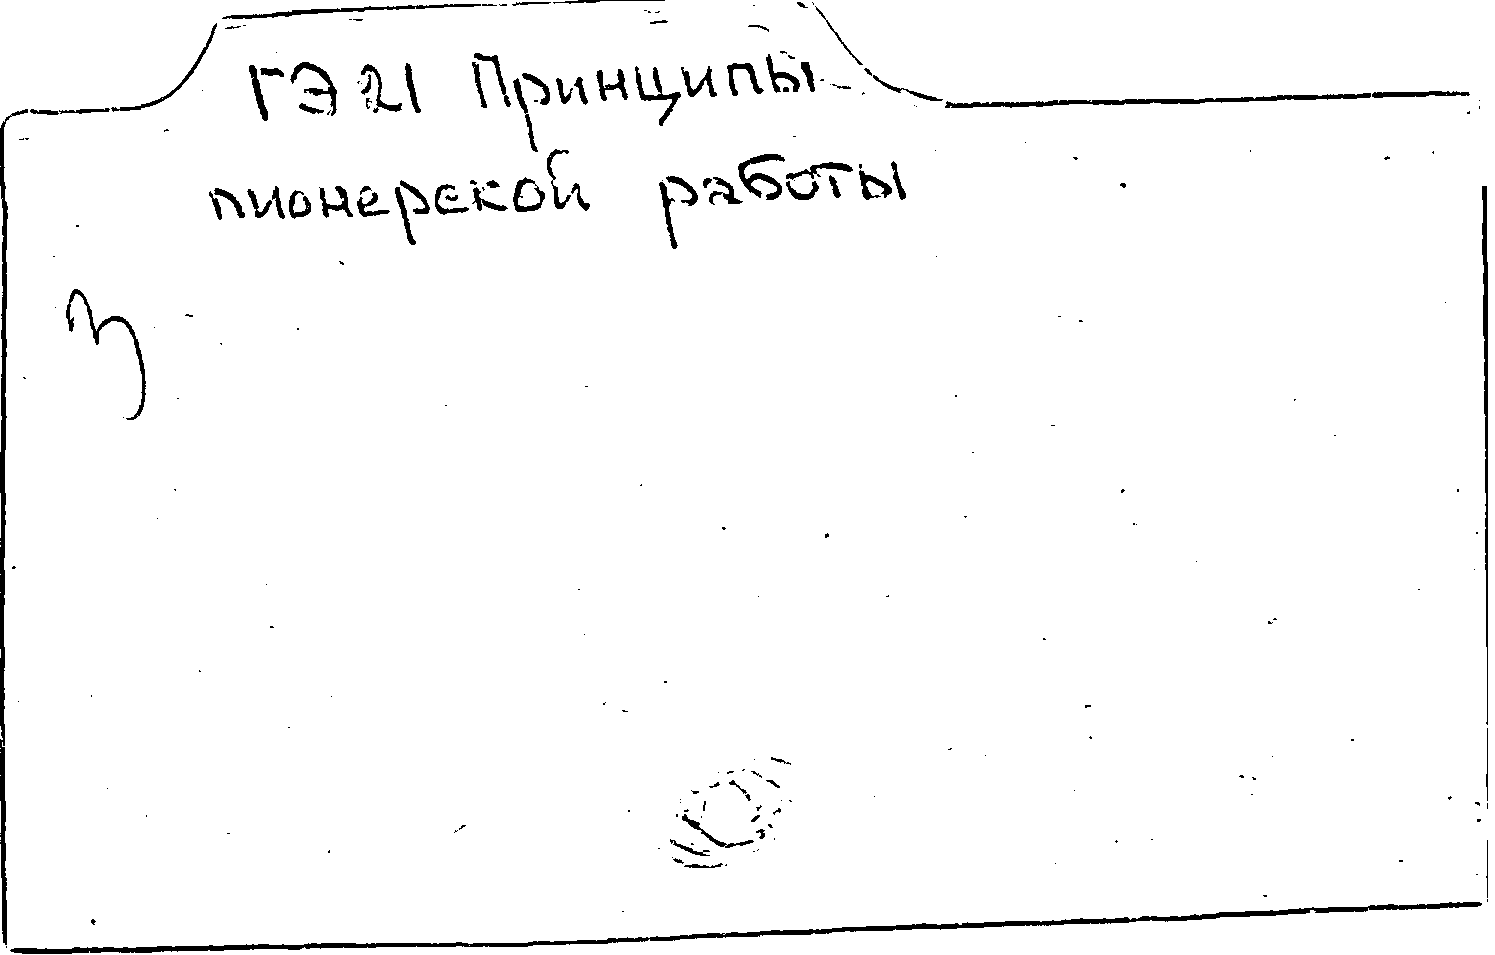 ГЭ21 Принципы
пионерской работы